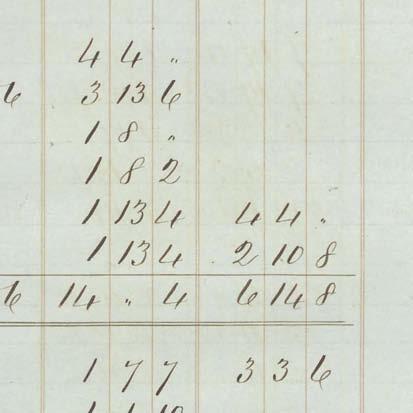 4 4 "
6 3 13 6
1 8 "
1 8 2
1 13 4 4 4 "
1 13 4 2 10 8
6 14 " 4 6 14 8
1 7 7 3 3 6